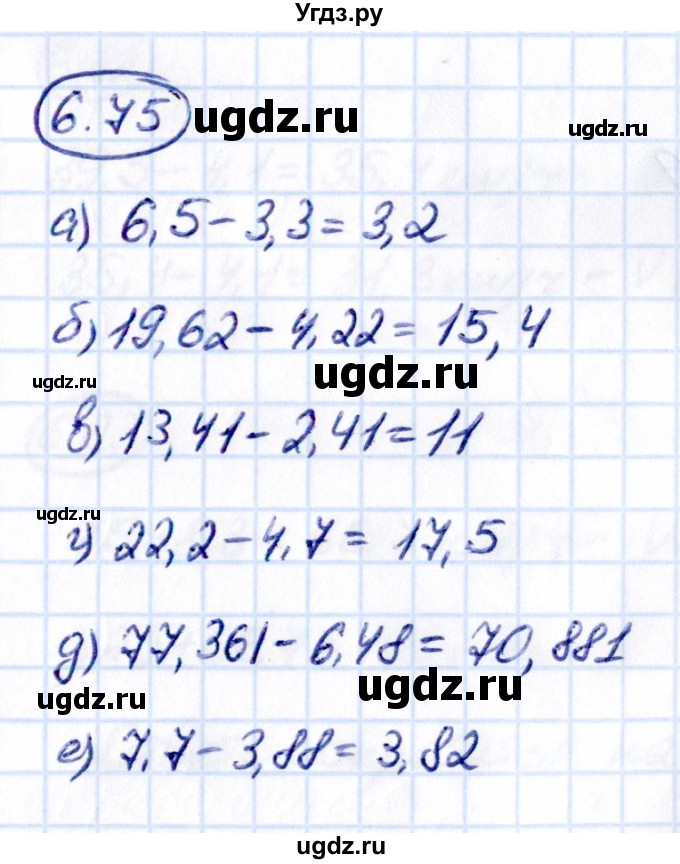 Угдз.ру
6.75 ugdz.ru
ugdz.ru
а) 6,5 - 3,3 = 3,2
б) 19,62 - 4,22 = 15,4
ugdz.ru ugdz.ru
в) 13,41 - 2,41 = 11
ugdz.ru
г) 22,2 - 4,7 = 17,5
д) 77,361 - 6,48 = 70,881
ugdz.ru ugdz.ru
е) 7,7 - 3,88 = 3,82
ugdz.ru